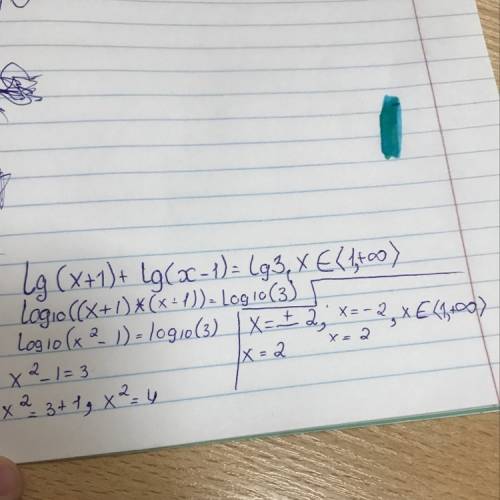 lg(x+1)+ lg(x-1)= lg3, x∈⟨1,+∞⟩
log10((x+1)*(x-1))=log10(3)
log10(x²-1)=log10(3)
x²-1=3
x²=3+1, x²=4
x=±2; x=-2, x∈⟨1,+∞⟩
x=2
x=2